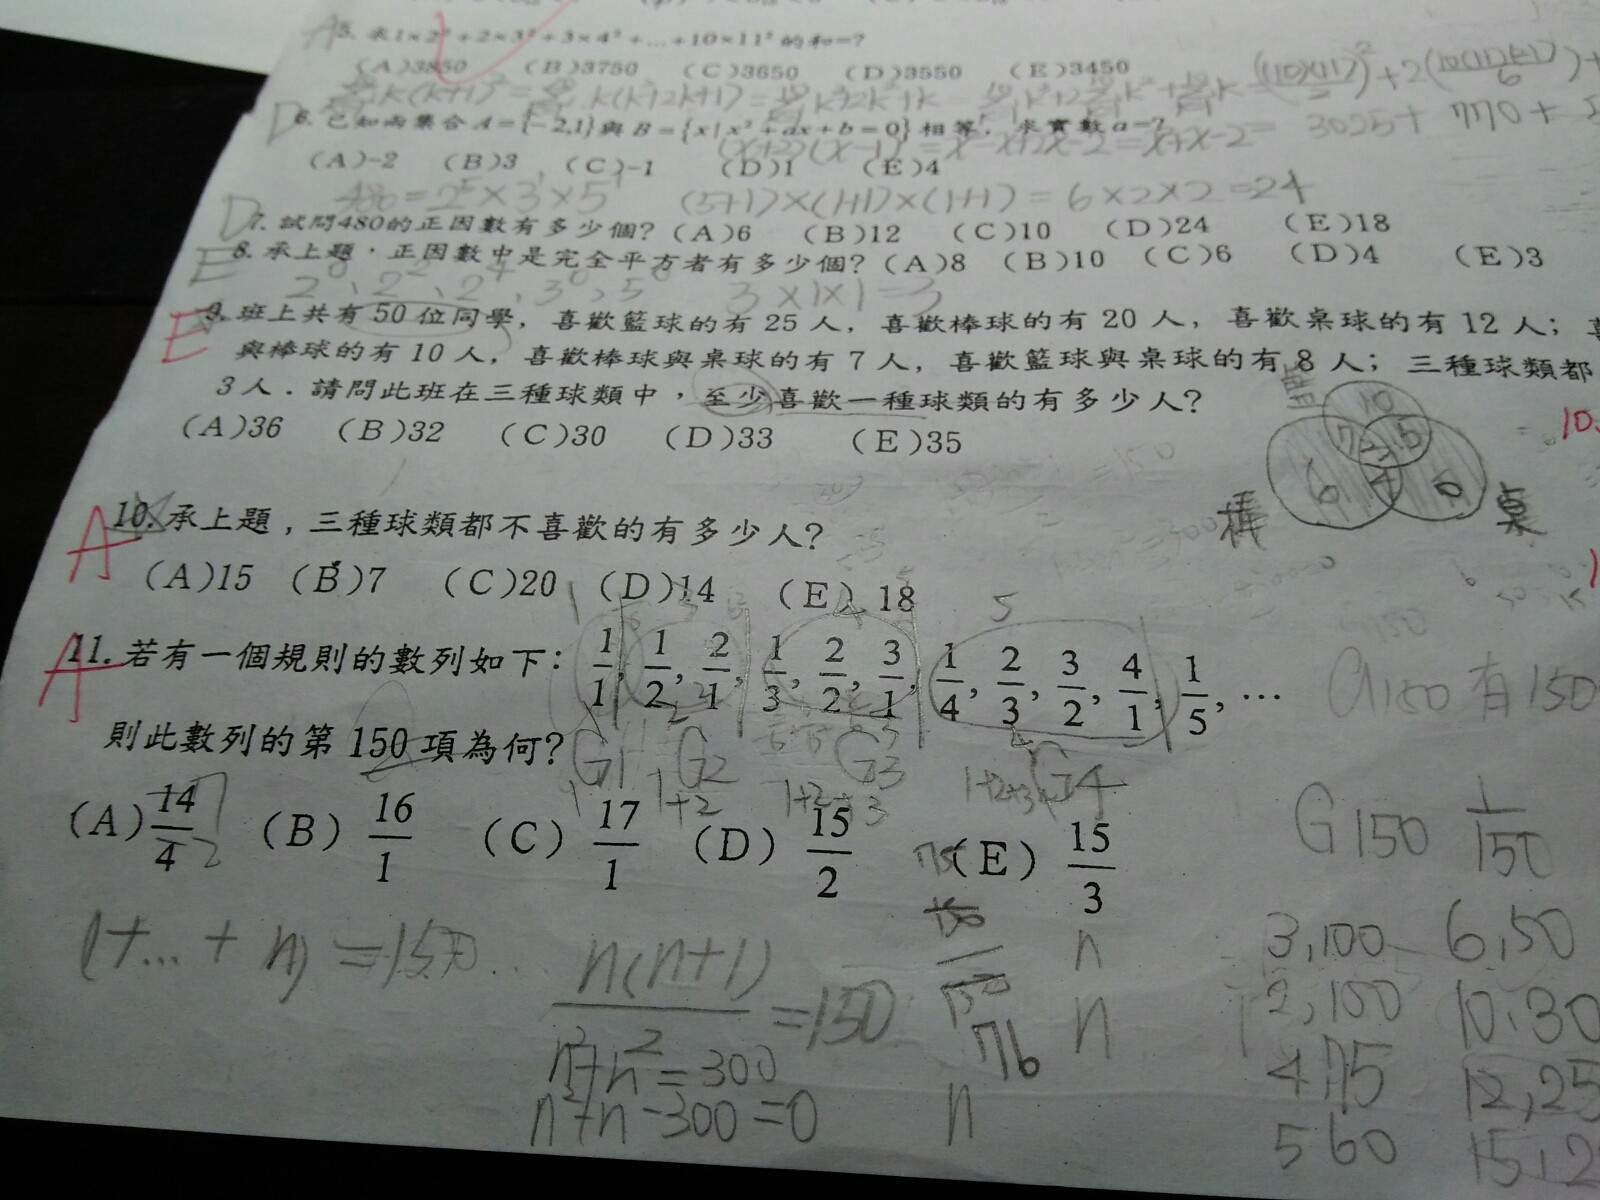 A 5. 求1×2²+2×3²+3×4²+…+10×11²的和=?
(A)3850 (B)3750 (C)3650 (D)3550 (E)3450
k(k+1)² = k(k²+2k+1) = k³+2k²+k
D 6. 已知兩集合A={-2,1}與B={x|x²+ax+b=0}相等, 求實數a=?
3025+ 770+
(x+2)(x-1) = x²-x+2x-2 = x²+x-2
(A)-2 (B)3 (C)-1 (D)1 (E)4
480=2⁵×3×5¹ (5+1)×(1+1)×(1+1)=6×2×2=24
D 7. 試問480的正因數有多少個? (A)6 (B)12 (C)10 (D)24 (E)18
E 8. 承上題,正因數中是完全平方者有多少個? (A)8 (B)10 (C)6 (D)4 (E)3
2⁰、2²、2⁴, 3⁰, 5⁰ 3×1×1=3
E 9. 班上共有50位同學, 喜歡籃球的有25人, 喜歡棒球的有20人, 喜歡桌球的有12人;
與棒球的有10人, 喜歡棒球與桌球的有7人, 喜歡籃球與桌球的有8人; 三種球類都
3人.請問此班在三種球類中,至少喜歡一種球類的有多少人?
(A)36 (B)32 (C)30 (D)33 (E)35
10 7 3 5 6 4 0
棒 桌
10.
A 10. 承上題, 三種球類都不喜歡的有多少人?
(A)15 (B)7 (C)20 (D)14 (E) 18
A 11. 若有一個規則的數列如下: 1/1, 1/2, 2/1, 1/3, 2/2, 3/1, 1/4, 2/3, 3/2, 4/1, 1/5, …
a150 有150
則此數列的第150項為何?
G1 G2 G3 G4
1 1+2 1+2+3
(A) 14/4 (B) 16/1 (C) 17/1 (D) 15/2 (E) 15/3
G150 1/150
1+…+n=150 n(n+1)/2=150
n²+n=300
n²+n-300=0
76
n
n
n
3,100 6,50
2,150 10,30
4 75 12,25
5 60